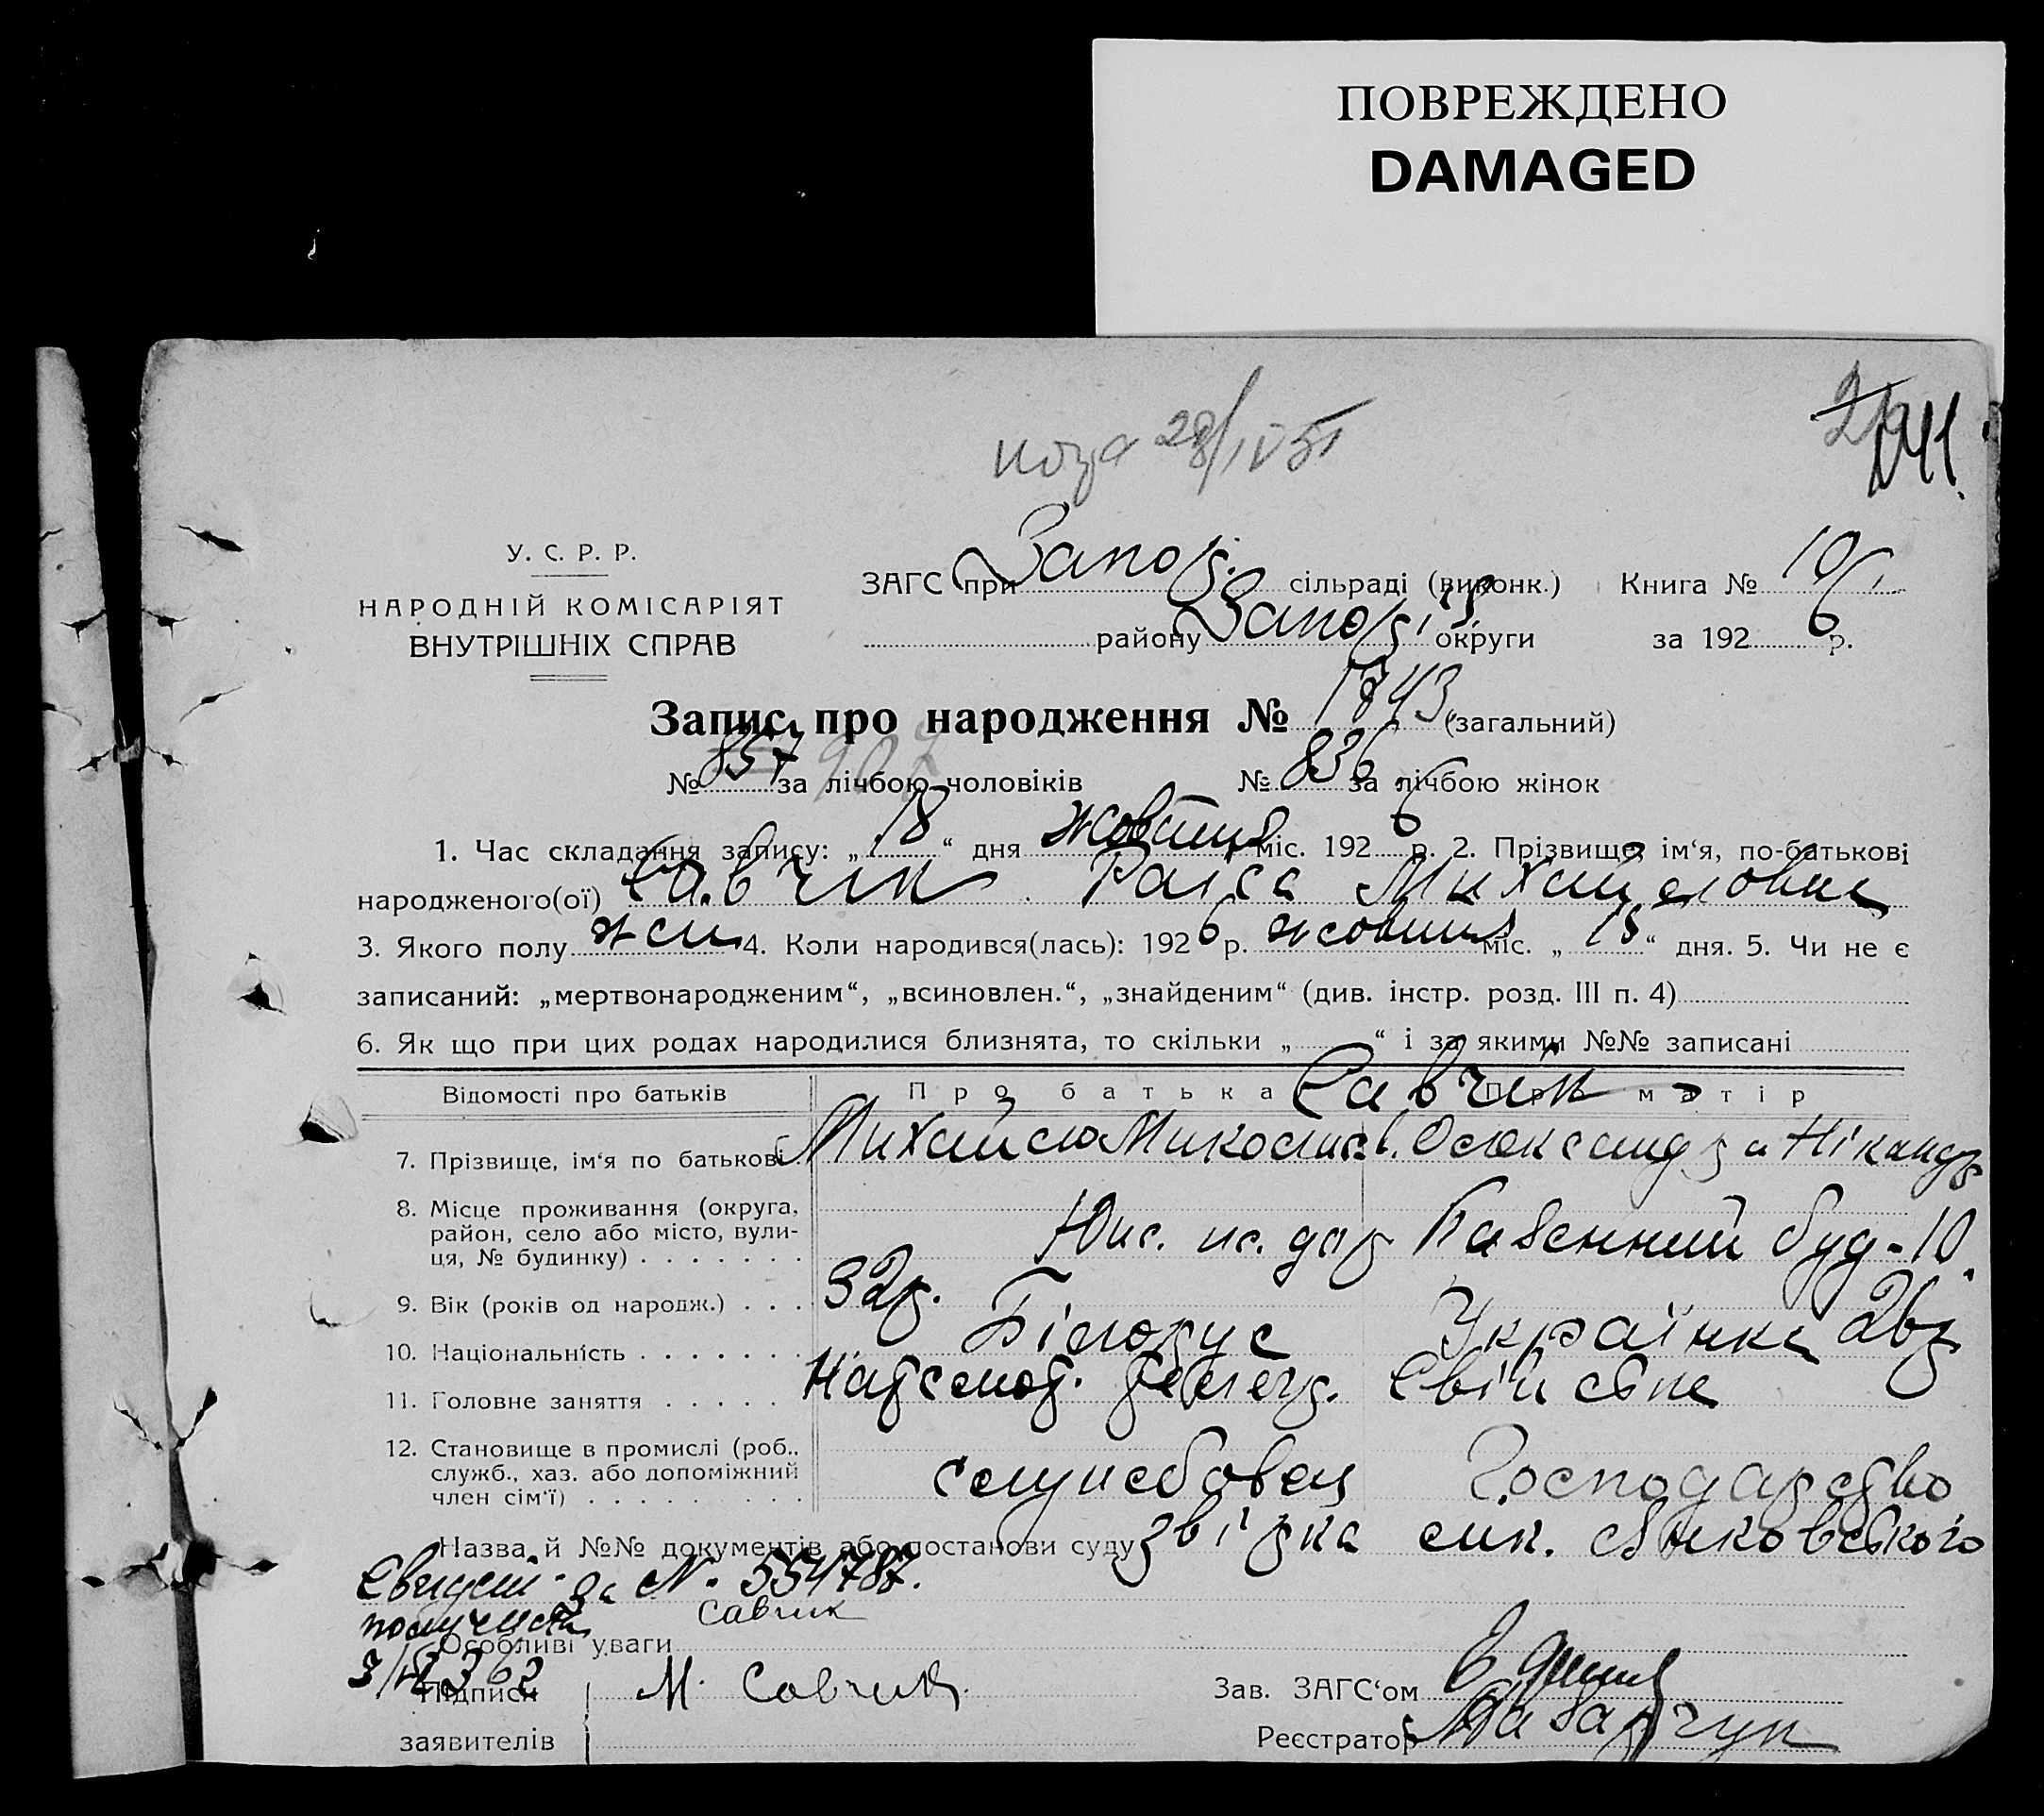 ПОВРЕЖДЕНО
DAMAGED
28/IV 51
241
У. С. Р. Р.
НАРОДНІЙ КОМІСАРІЯТ
ВНУТРІШНІХ СПРАВ
ЗАГС при Запоріз. сільраді (виконк.) Книга № 10
району Запоріз округи за 1926 р.
Запис про народження № 1743 (загальний)
№ 857 907 за лічбою чоловіків № 836 за лічбою жінок
1. Час складання запису: „18“ дня жовтня міс. 1926 р. 2. Прізвище, ім‘я, по-батькові
народженого(ої) Савчик Раїса Михайловна
3. Якого полу жін 4. Коли народився(лась): 1926 р. жовтня міс. „15“ дня. 5. Чи не є
записаний: „мертвонародженим“, „всиновлен.“, „знайденим“ (див. інстр. розд. III п. 4)
6. Як що при цих родах народилися близнята, то скільки „ “ і за якими №№ записані
Відомості про батьків Про батька Про матір
Савчик
7. Прізвище, ім‘я по батькові Михайло Миколаєв. Олександра Нікандр
8. Місце проживання (округа,
район, село або місто, вули-
ця, № будинку) Юж. ж. дор Казенний буд-10.
9. Вік (років од народж.) 32р. 26р
10. Національність Білорус Українка
11. Головне заняття Надсмот. телегр. Свійське
12. Становище в промислі (роб.,
служб., хаз. або допоміжний
член сім‘ї) службовец Господарство
Назва й №№ документів або постанови суду
Свидет. за № 554787.
получила Савчик
Особливі уваги
Підписи М. Савчик
Зав. ЗАГС‘ом
заявителів
Реєстратор